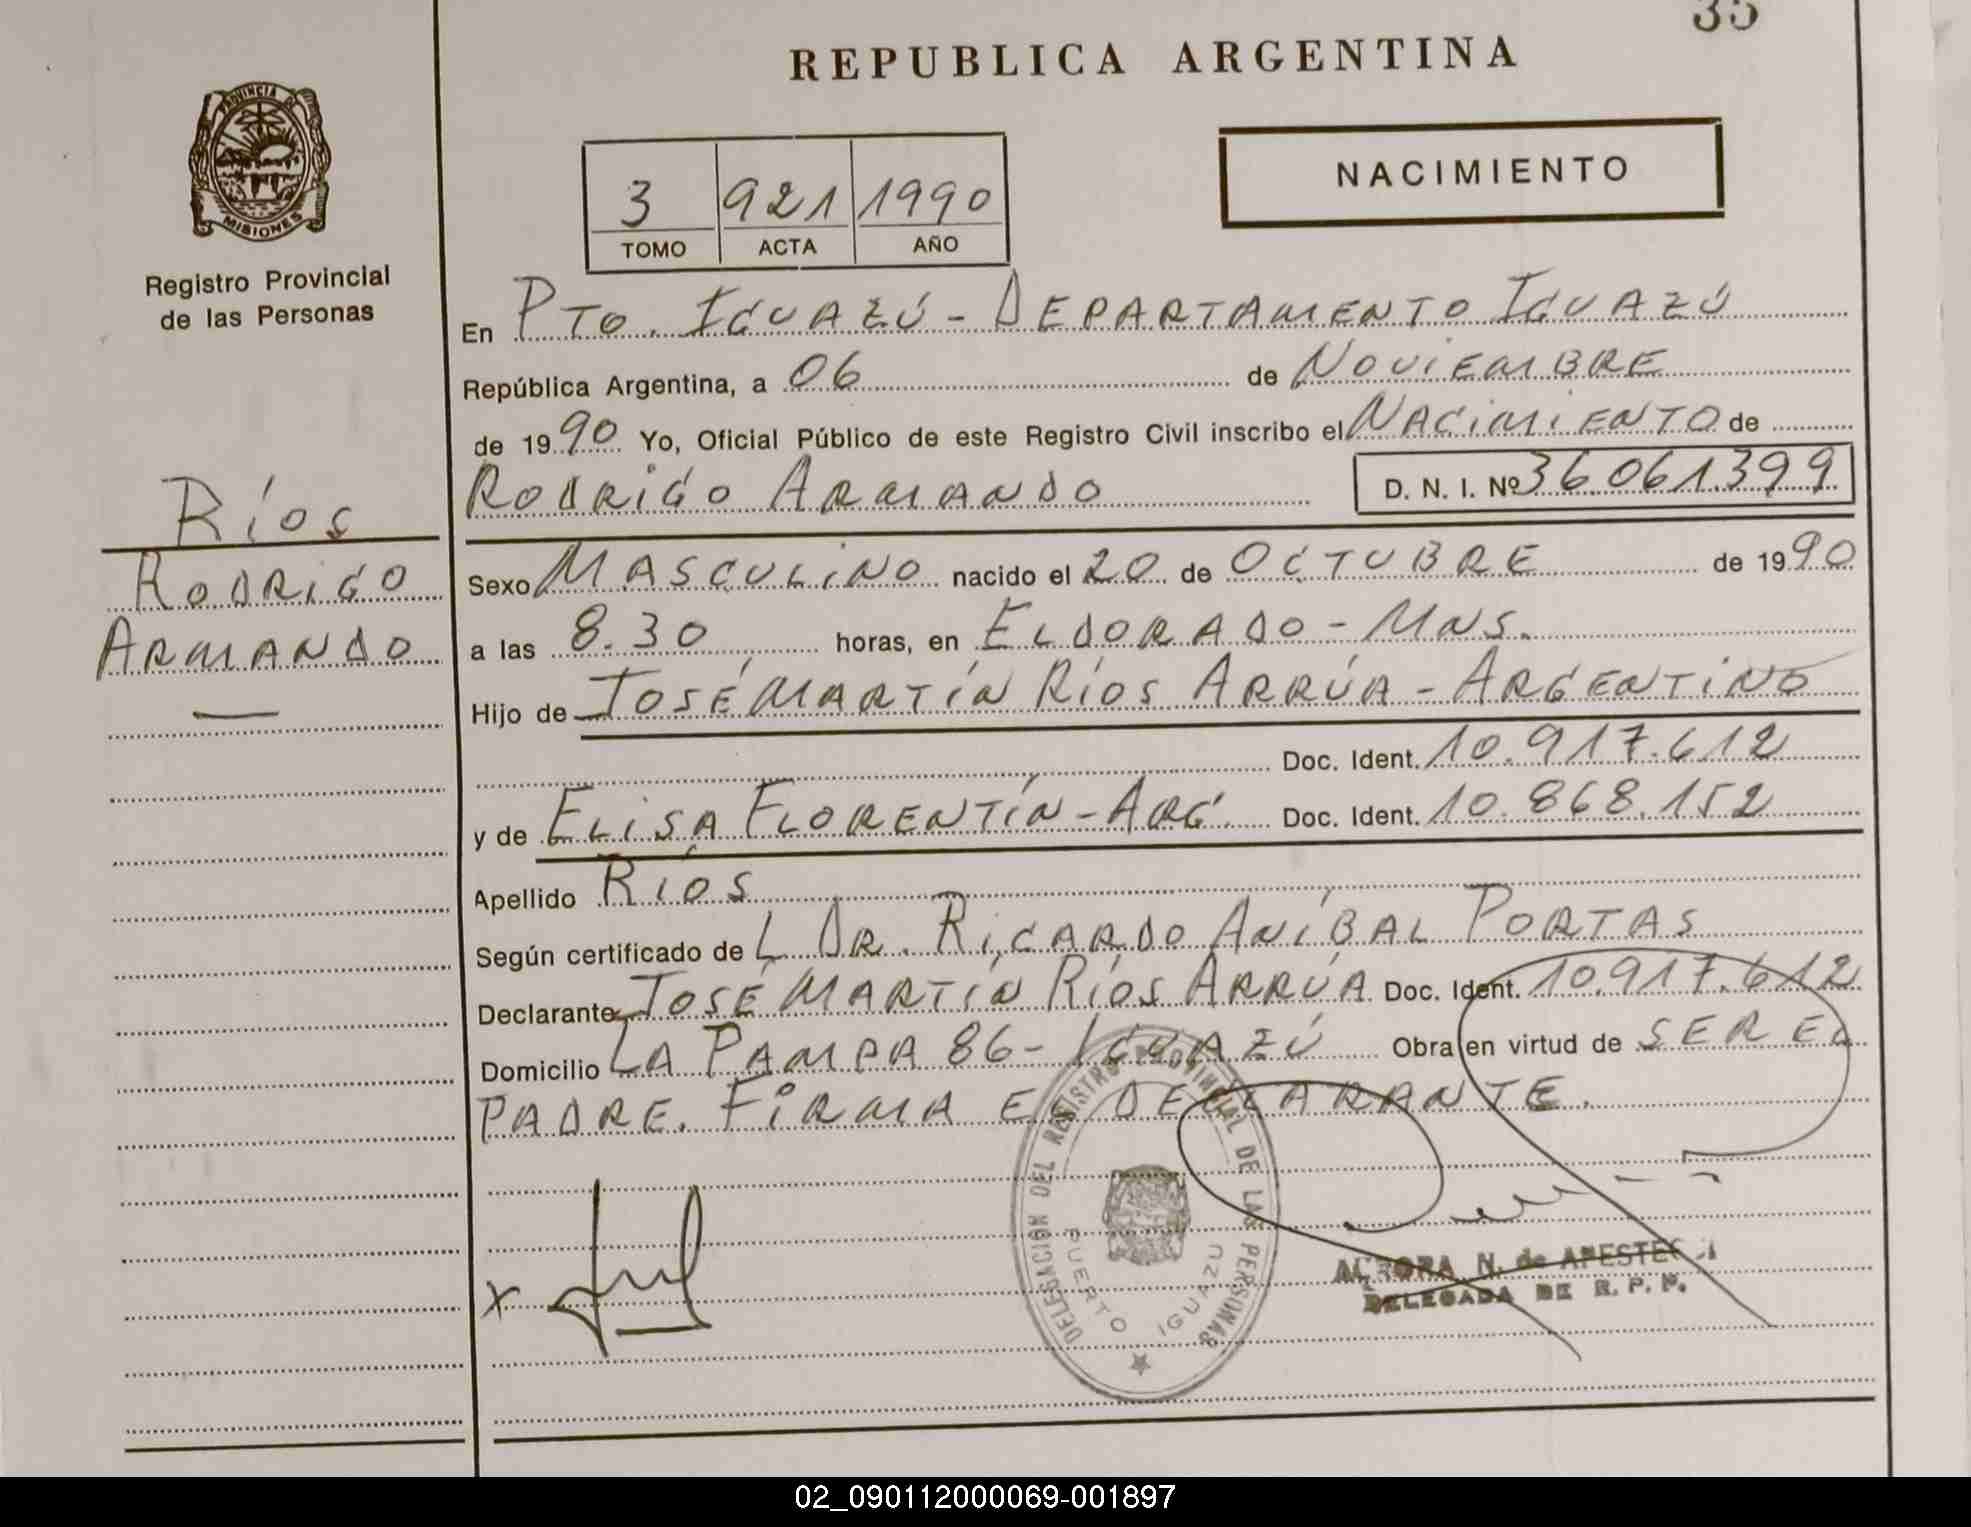 35
REPUBLICA ARGENTINA
PROVINCIA DE
MISIONES
Registro Provincial
de las Personas
NACIMIENTO
3 921 1990
TOMO ACTA AÑO
En PTO. IGUAZÚ - DEPARTAMENTO IGUAZÚ
República Argentina, a 06 de NOVIEMBRE
de 1990 Yo, Oficial Público de este Registro Civil inscribo el NACIMIENTO de
RODRIGO ARMANDO D. N. I. Nº 36.061.399
RÍOS
RODRIGO
ARMANDO
—
Sexo MASCULINO nacido el 20 de OCTUBRE de 1990
a las 8.30 horas, en ELDORADO - MNS.
Hijo de JOSÉ MARTÍN RÍOS ARRÚA - ARGENTINO
Doc. Ident. 10.917.612
y de ELISA FLORENTÍN - ARG. Doc. Ident. 10.868.152
Apellido RÍOS
Según certificado de L DR. RICARDO ANÍBAL PORTAS
Declarante JOSÉ MARTÍN RÍOS ARRÚA Doc. Ident. 10.917.612
Domicilio LA PAMPA 86 - IGUAZÚ Obra en virtud de SER EL
PADRE. FIRMA EL DECLARANTE.
x
DELEGACION DEL REGISTRO PROVINCIAL DE LAS PERSONAS
PUERTO IGUAZU
AURORA N. de
DELEGADA DE R. P. P.
02_090112000069-001897